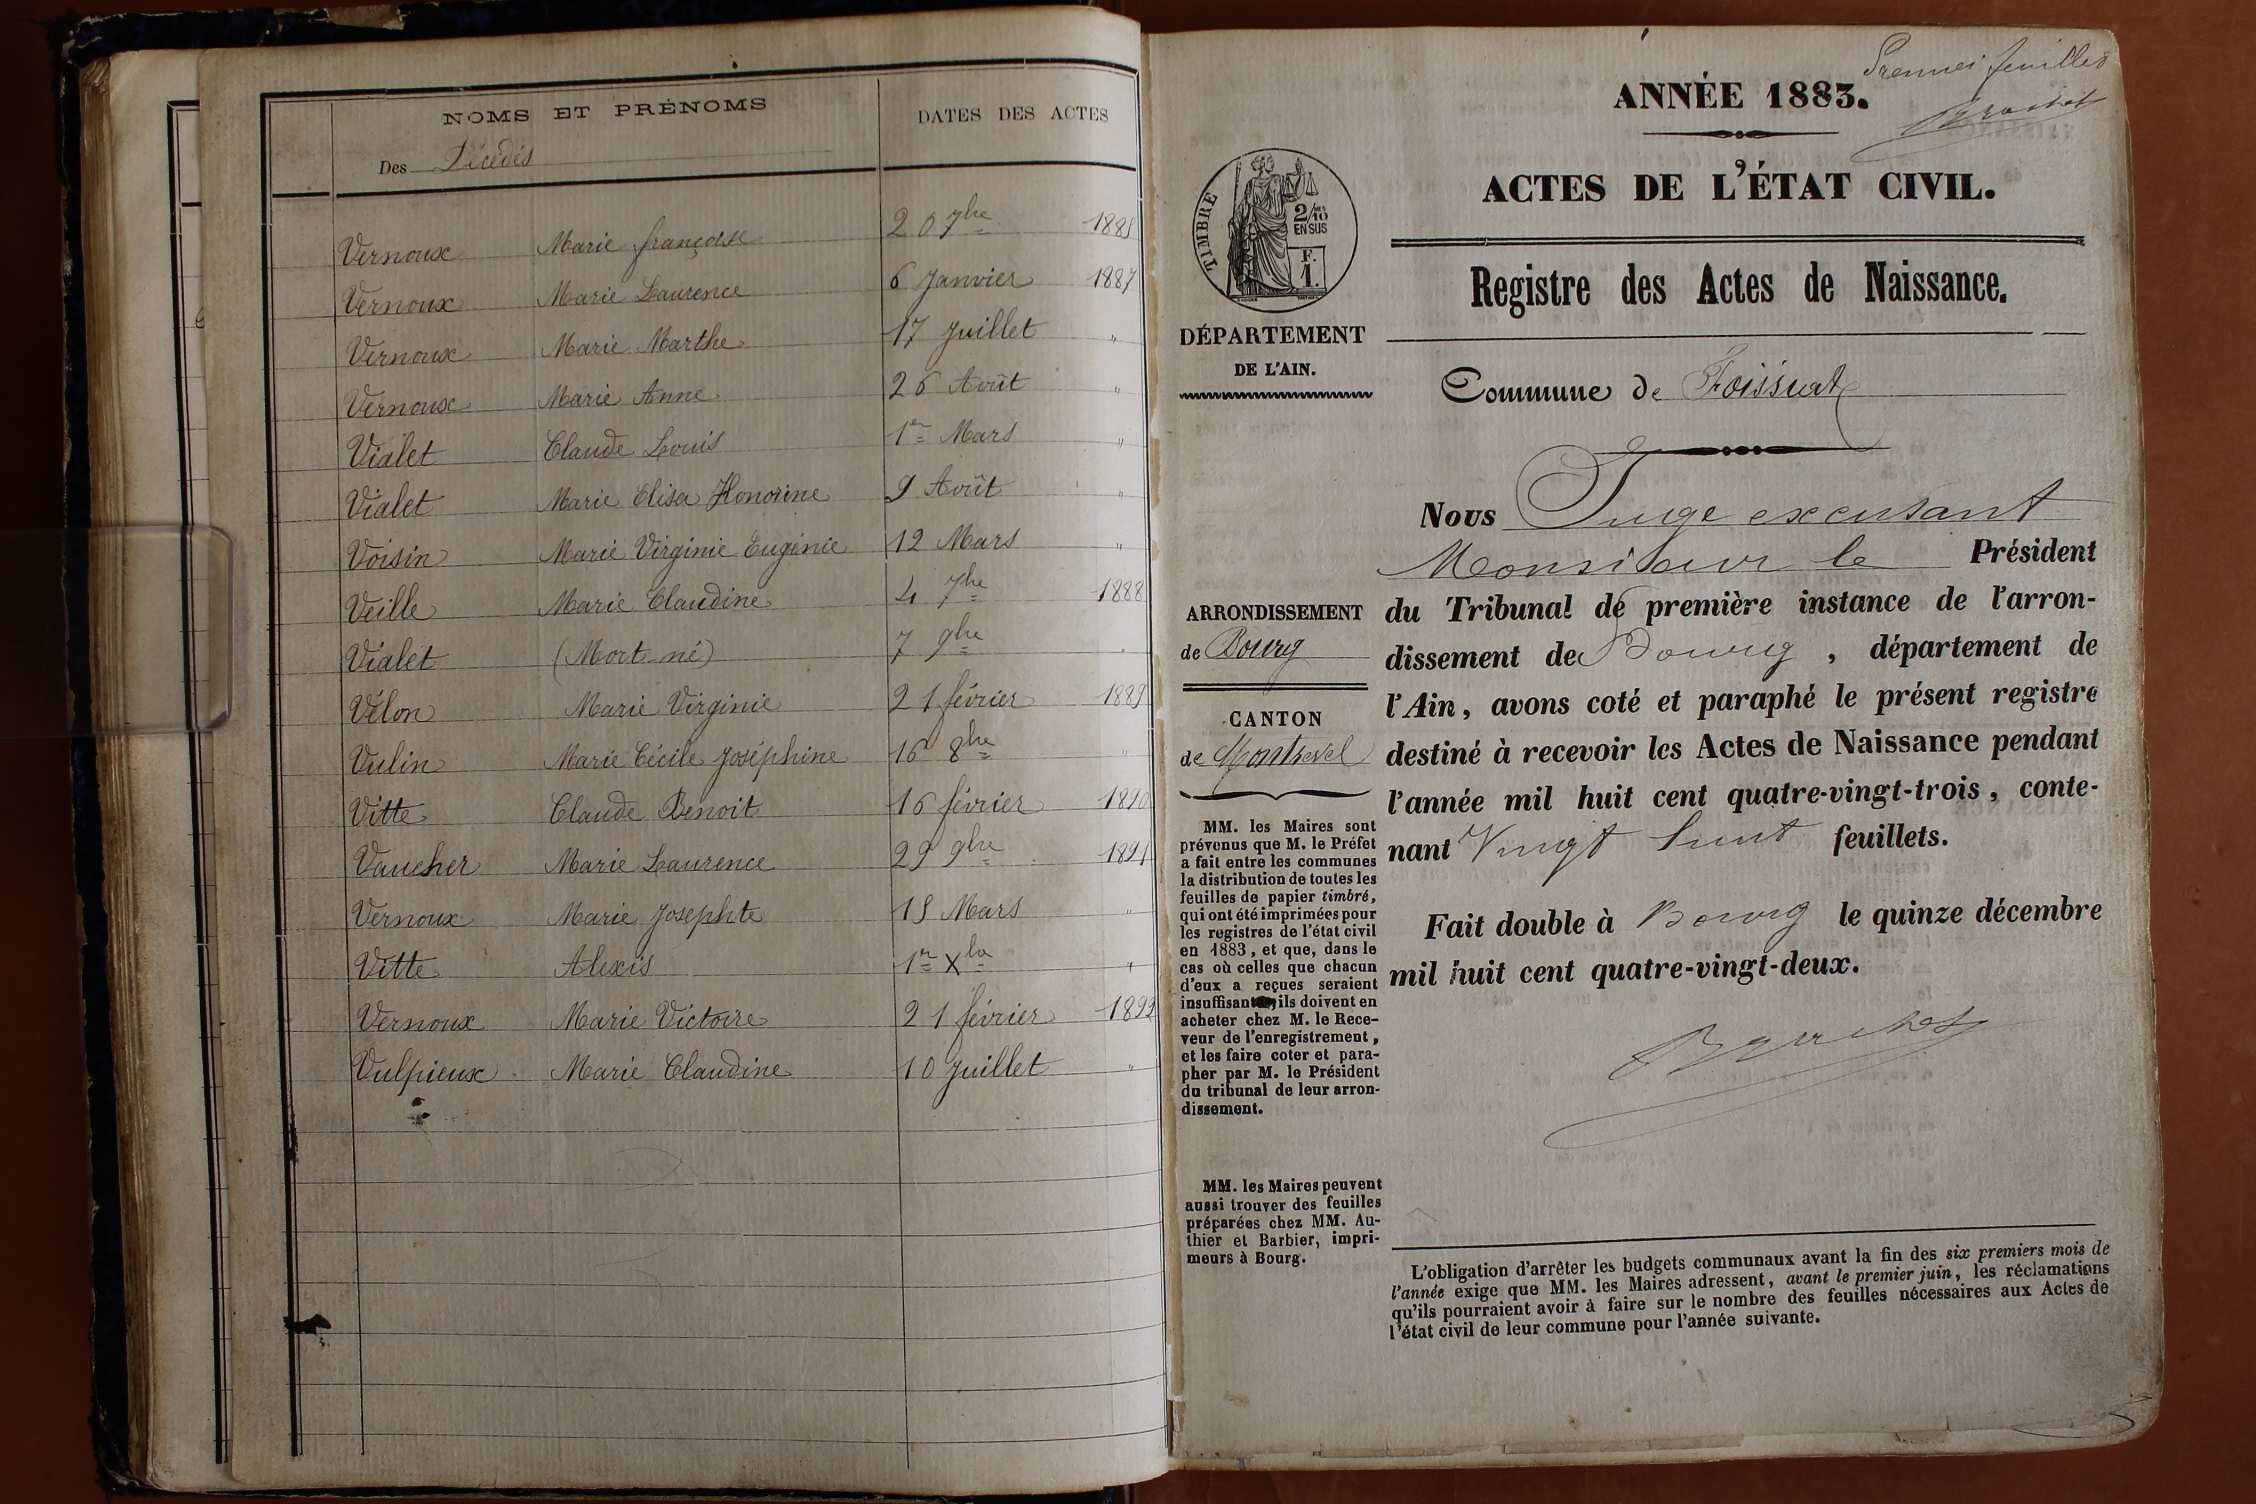 NOMS ET PRÉNOMS
DATES DES ACTES
Des Décédés
Vernoux Marie françoise 20 7bre 1885
Vernoux Marie Laurence 6 Janvier 1887
Vernoux Marie Marthe 17 Juillet "
Vernoux Marie Anne 26 Août "
Vialet Claude Louis 1er Mars "
Vialet Marie Elisa Honorine 9 Août "
Voisin Marie Virginie Eugénie 12 Mars "
Veille Marie Claudine 4 7bre 1888
Vialet (Mort né) 7 9bre
Vélon Marie Virginie 21 février 1889
Vulin Marie Cécile Joséphine 16 8bre "
Vitte Claude Benoit 16 février 1890
Vaucher Marie Laurence 29 9bre 1891
Vernoux Marie Josephte 15 Mars "
Vitte Alexis 1er Xbre "
Vernoux Marie Victoire 21 février 1892
Vulpieux Marie Claudine 10 Juillet "
Premier feuillet
ANNÉE 1883.
ACTES DE L'ÉTAT CIVIL.
TIMBRE
2/10
EN SUS
F.
1.
DÉPARTEMENT
DE L'AIN.
Registre des Actes de Naissance.
Commune de Foissiat
Nous Juge excusant
Monsieur le Président
du Tribunal de première instance de l'arron-
dissement de Bourg, département de
l'Ain, avons coté et paraphé le présent registre
destiné à recevoir les Actes de Naissance pendant
l'année mil huit cent quatre-vingt-trois, conte-
nant Vingt huit feuillets.
Fait double à Bourg le quinze décembre
mil huit cent quatre-vingt-deux.
ARRONDISSEMENT
de Bourg
CANTON
de Montrevel
MM. les Maires sont
prévenus que M. le Préfet
a fait entre les communes
la distribution de toutes les
feuilles de papier timbré,
qui ont été imprimées pour
les registres de l'état civil
en 1883, et que, dans le
cas où celles que chacun
d'eux a reçues seraient
insuffisantes, ils doivent en
acheter chez M. le Rece-
veur de l'enregistrement,
et les faire coter et para-
pher par M. le Président
du tribunal de leur arron-
dissement.
MM. les Maires peuvent
aussi trouver des feuilles
préparées chez MM. Au-
thier et Barbier, impri-
meurs à Bourg.
L'obligation d'arrêter les budgets communaux avant la fin des six premiers mois de
l'année exige que MM. les Maires adressent, avant le premier juin, les réclamations
qu'ils pourraient avoir à faire sur le nombre des feuilles nécessaires aux Actes de
l'état civil de leur commune pour l'année suivante.